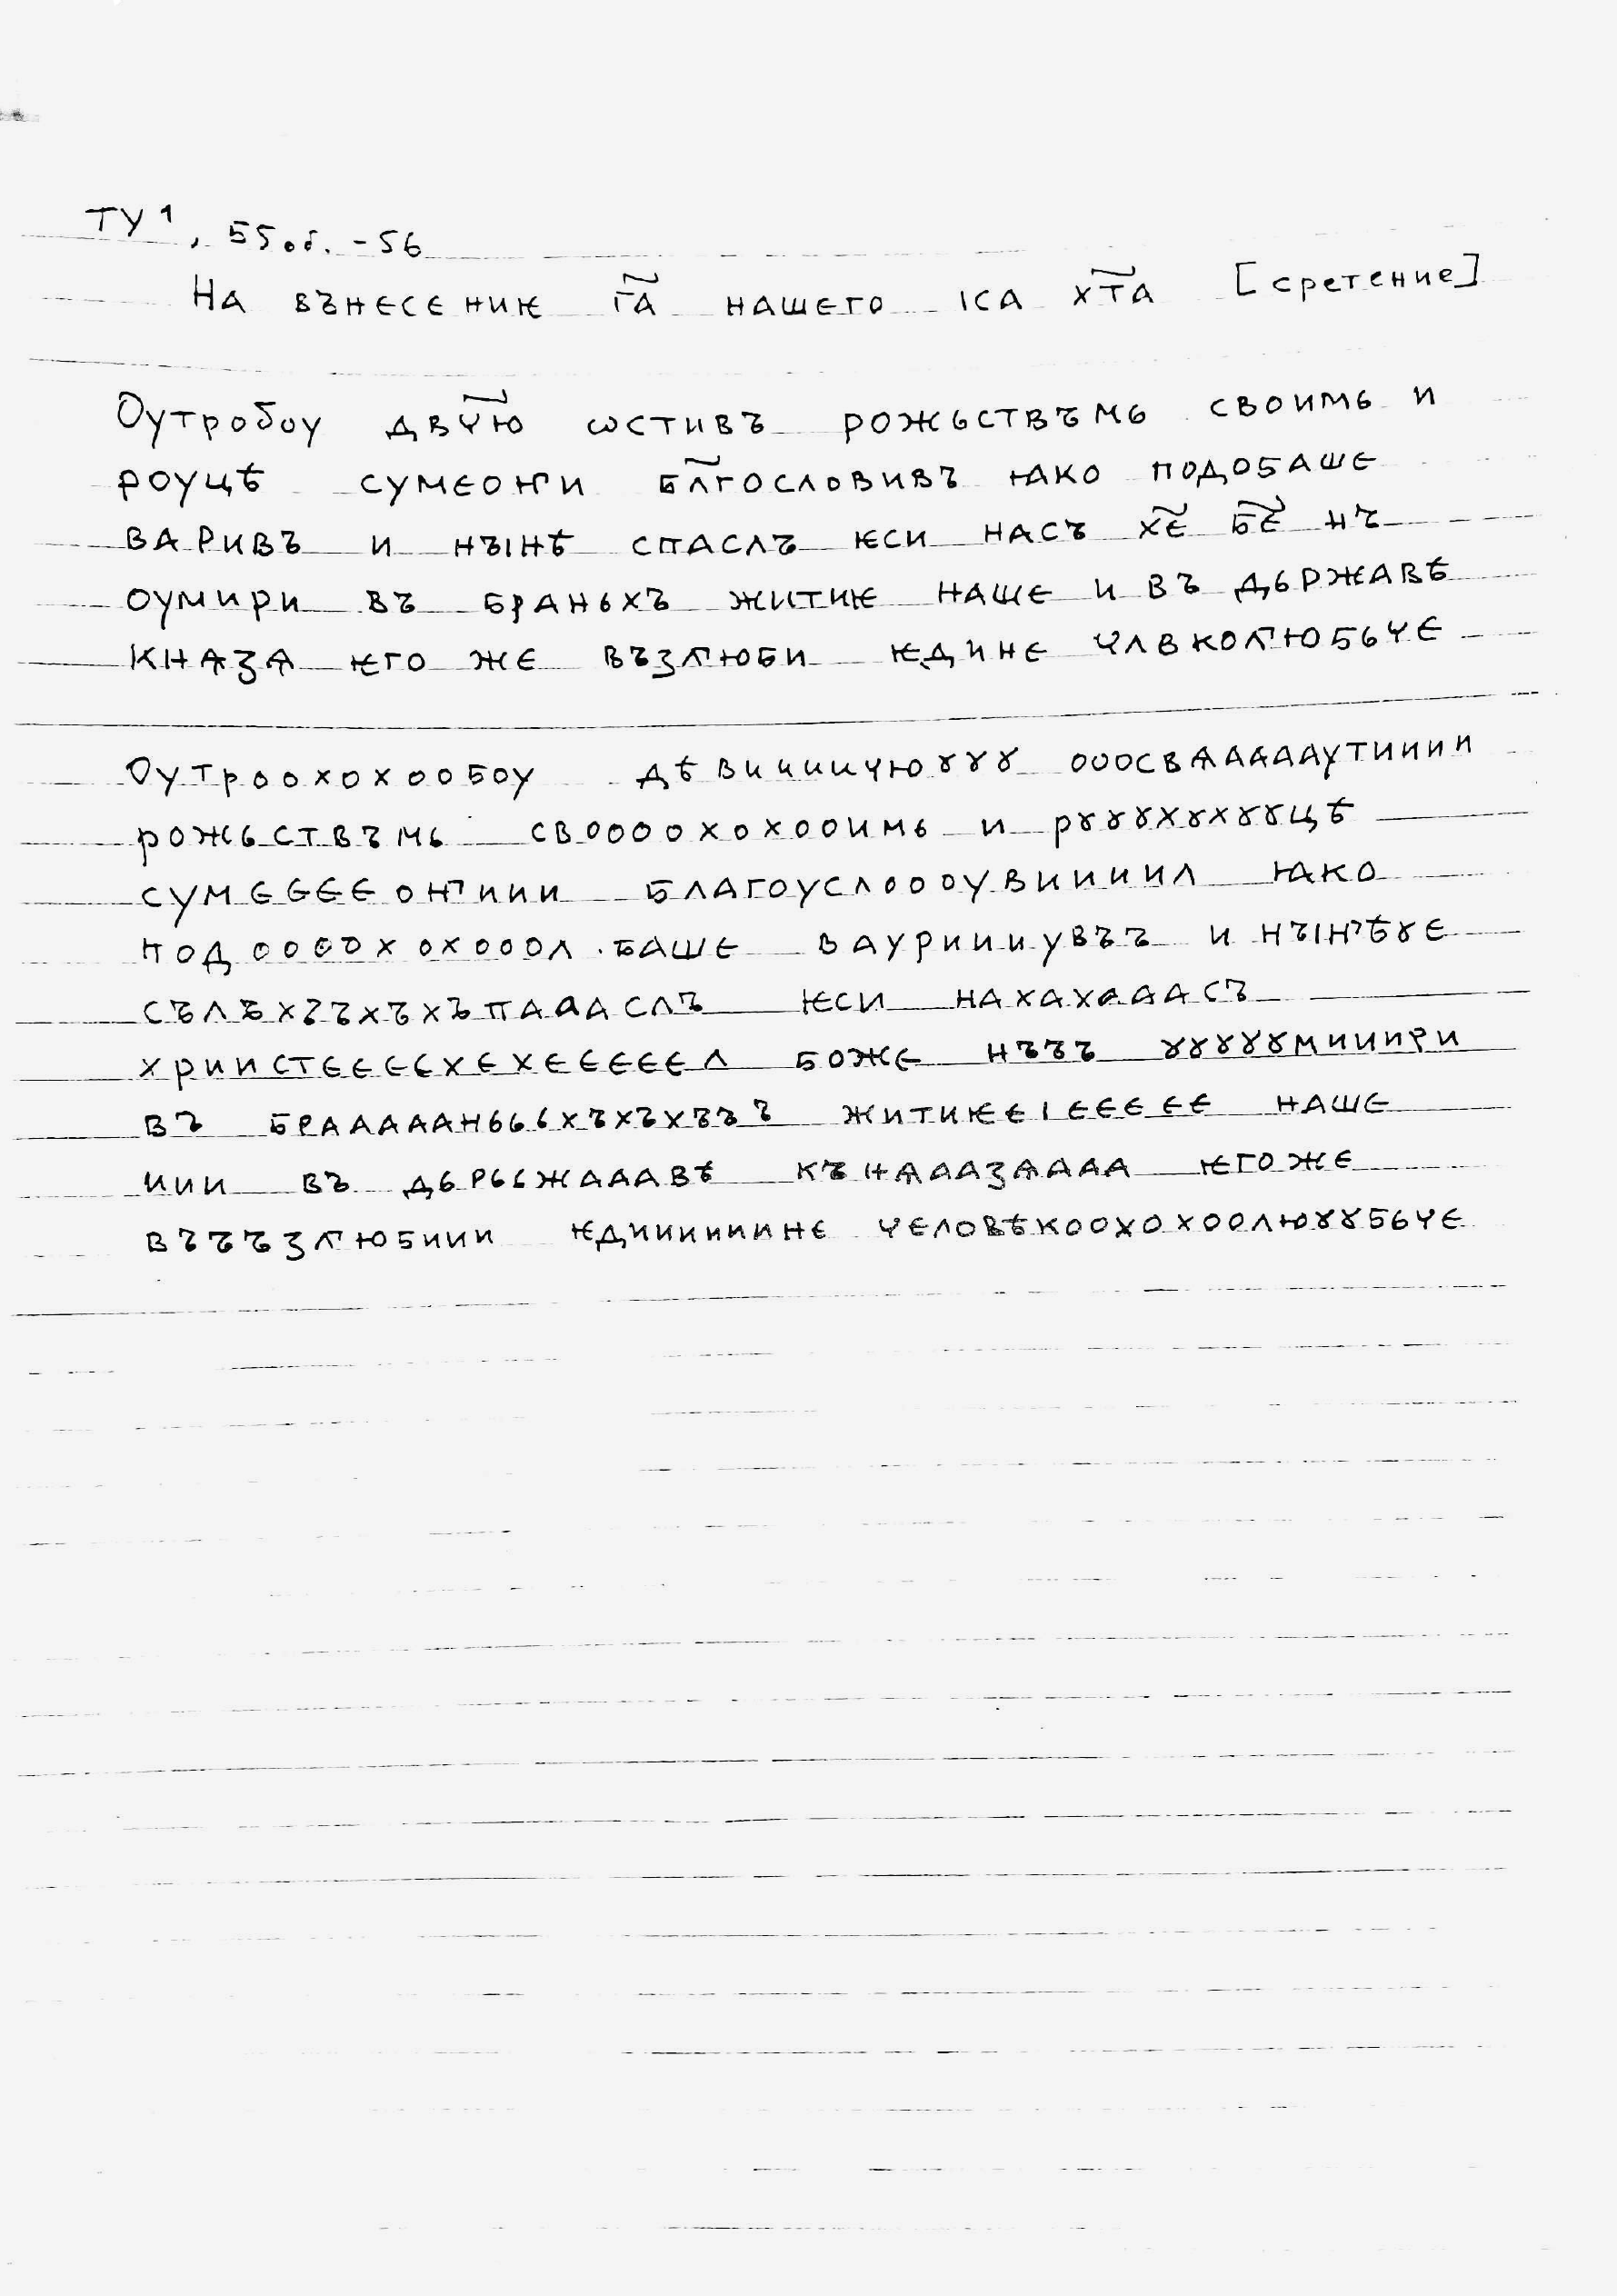 ТУ¹, 55об. - 56
На вънесениѥ г҃а нашего іса х҃та [сретение]
Оутробоу дв҃чю ѡстивъ рожьствъмь своимь и
роуцѣ сумеоньи бл҃гословивъ ꙗко подобаше
варивъ и нынѣ спаслъ ѥси насъ х҃е б҃е нъ
оумири въ браньхъ житиѥ наше и въ дьржавѣ
кнѧзѧ ѥго же възлюби ѥдине члвколюбьче
Оутроохохообоу дѣвичиичюꙋꙋꙋ ооосвѧааааутииии
рожьствъмь свооооохохооимь и рꙋꙋꙋхꙋхꙋꙋцѣ
сумєєєєоньиии благоуслооооувииииил ꙗко
подоооохохооол.баше ваурииииувъъ и нынѣꙋє
сълъхъъхъхъпаааслъ ѥси нахахааасъ
хриистєєєєхєхєєєєєл божє нъъъ ꙋꙋꙋꙋꙋмиииири
въ браааааньььхъхъхъъъ житиѥєıєєєєє нашє
иии въ дьрььжааавѣ кънѧаазѧааа ѥгожє
въъъзлюбиии ѥдииииииинє чєловѣкоохохооолюꙋꙋбьчє